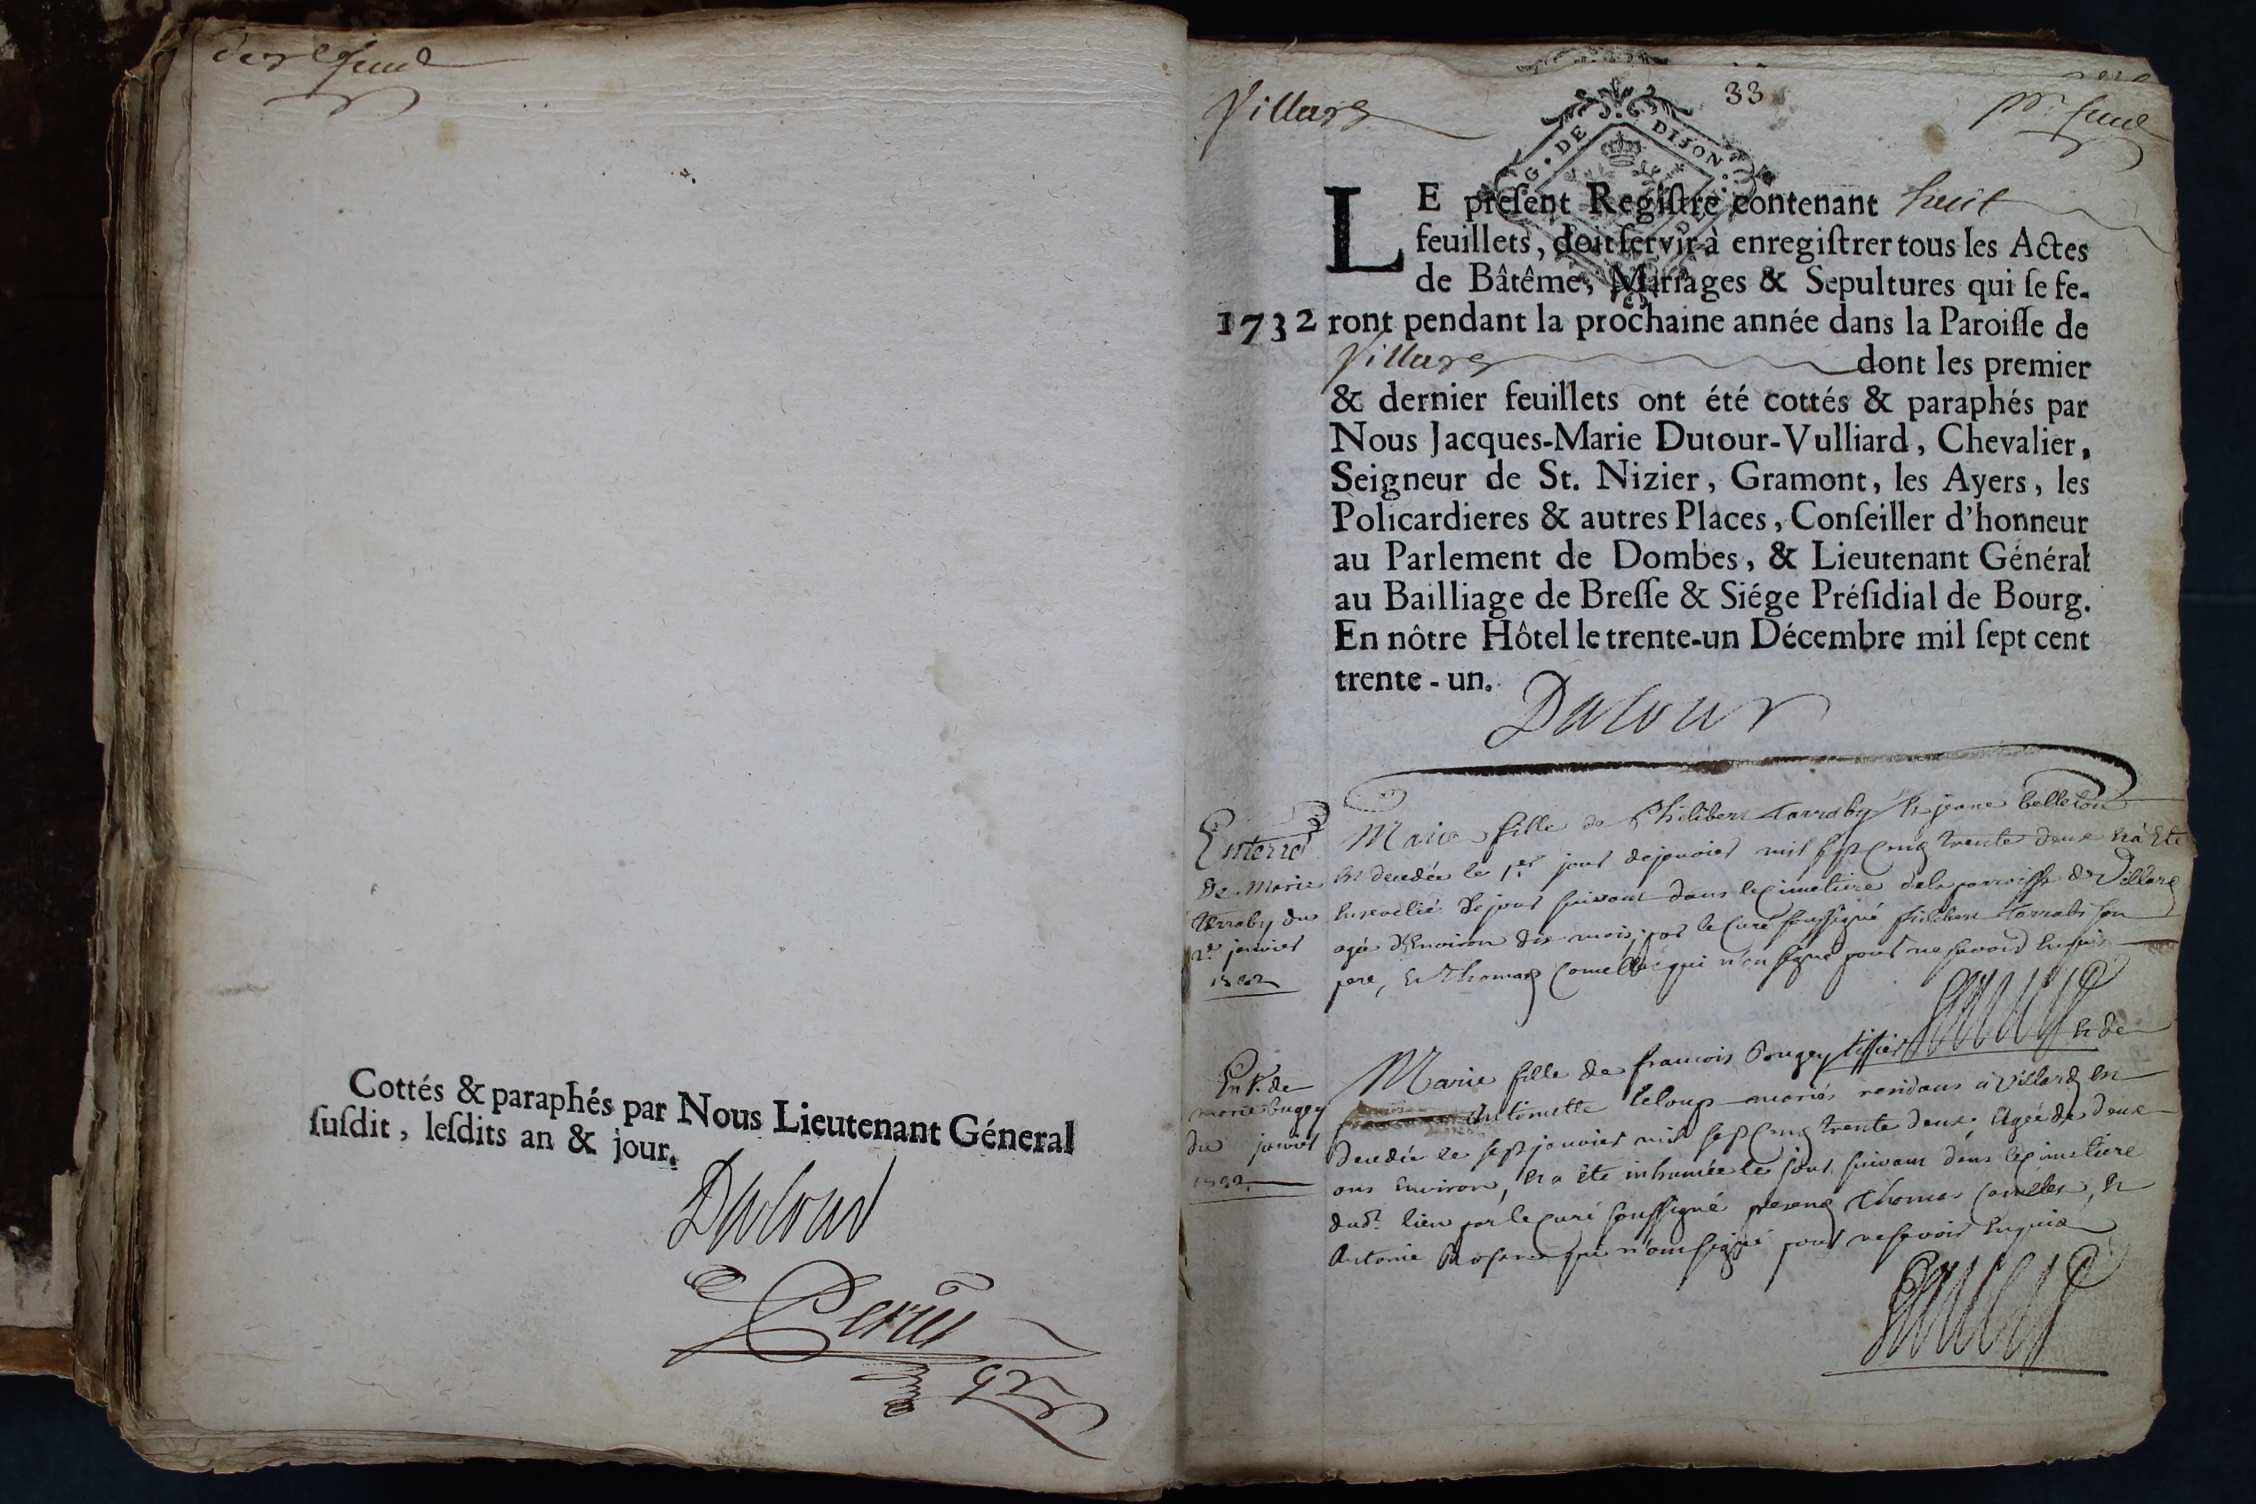 Cottés & paraphés par Nous Lieutenant Géneral
ſuſdit, leſdits an & jour.
Dutour
Villars
33
G. DE DIJON
LE preſent Regiſtre contenant huit
feuillets, doit ſervir à enregiſtrer tous les Actes
de Bâtême, Mariages & Sepultures qui ſe fe-
1732 ront pendant la prochaine année dans la Paroiſſe de
Villars dont les premier
& dernier feuillets ont été cottés & paraphés par
Nous Jacques-Marie Dutour-Vulliard, Chevalier,
Seigneur de St. Nizier, Gramont, les Ayers, les
Policardieres & autres Places, Conſeiller d'honneur
au Parlement de Dombes, & Lieutenant Général
au Bailliage de Breſſe & Siége Préſidial de Bourg.
En nôtre Hôtel le trente-un Décembre mil ſept cent
trente-un.
Dutour
Marie fille de Philibert Et jeane
decedée le 1er jour de janvier mil sept cens trente deux
le jour suivant dans le cimetiere de la parroisse de Villars
agée d'Environ dix mois, par le Curé soussigné
pere, Et Thomas qui n'ont signé pour ne savoir Enquis
de Marie
du
janvier
Marie fille de francois Et de
Antoinette Leloup mariés residans à Villars
decedée le sept janvier mil sept cens trente deux Agée de deux
ans Environ, a été inhumée le jour suivant dans le cimetiere
dudt. lieu par le Curé soussigné presens Thomas
Antoine qui n'ont signé pour ne savoir Enquis
du janvier